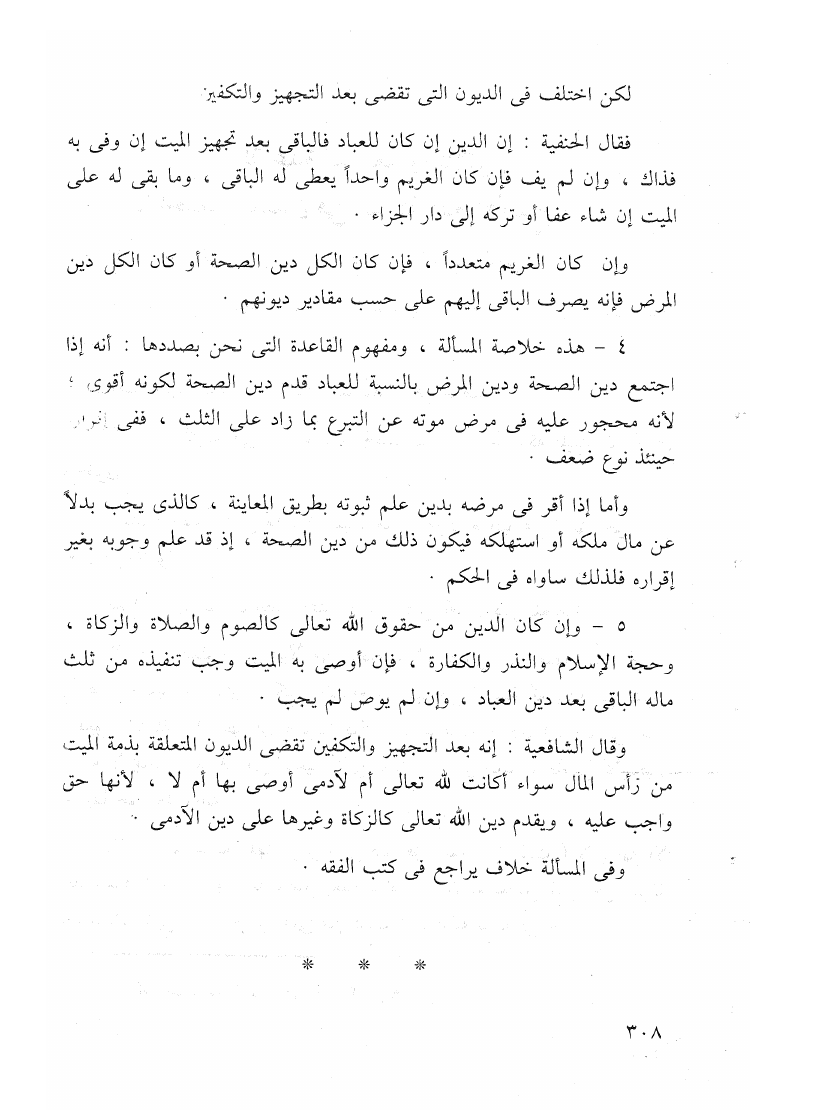 لكن اختلف فى الديون التى تقضى بعد التجهيز والتكفين
فقال الحنفية : إن الدين إن كان للعباد فالباقى بعد تجهيز الميت إن وفى به
فذاك ، وإن لم يف فإن كان الغريم واحداً يعطى له الباقى ، وما بقى له على
الميت إن شاء عفا أو تركه إلى دار الجزاء .
وإن كان الغريم متعدداً ، فإن كان الكل دين الصحة أو كان الكل دين
المرض فإنه يصرف الباقى إليهم على حسب مقادير ديونهم .
٤ - هذه خلاصة المسألة ، ومفهوم القاعدة التى نحن بصددها : أنه إذا
اجتمع دين الصحة ودين المرض بالنسبة للعباد قدم دين الصحة لكونه أقوى ؛
لأنه محجور عليه فى مرض موته عن التبرع بما زاد على الثلث ، ففى
حينئذ نوع ضعف .
وأما إذا أقر فى مرضه بدين علم ثبوته بطريق المعاينة ، كالذى يجب بدلاً
عن مال ملكه أو استهلكه فيكون ذلك من دين الصحة ، إذ قد علم وجوبه بغير
إقراره فلذلك ساواه فى الحكم .
٥ - وإن كان الدين من حقوق الله تعالى كالصوم والصلاة والزكاة ،
وحجة الإسلام والنذر والكفارة ، فإن أوصى به الميت وجب تنفيذه من ثلث
ماله الباقى بعد دين العباد ، وإن لم يوص لم يجب .
وقال الشافعية : إنه بعد التجهيز والتكفين تقضى الديون المتعلقة بذمة الميت
من رأس المال سواء أكانت لله تعالى أم لآدمى أوصى بها أم لا ، لأنها حق
واجب عليه ، ويقدم دين الله تعالى كالزكاة وغيرها على دين الآدمى .
وفى المسألة خلاف يراجع فى كتب الفقه .
* * *
٣٠٨